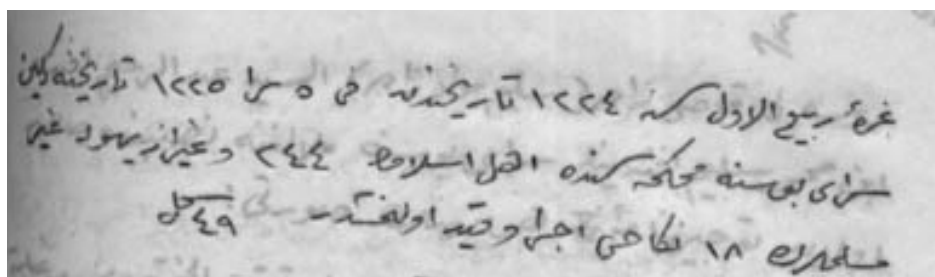 غرهٔ ربيع الاول سنه ١٢٢٤ تاريخندن فى ٥ را ١٢٢٥ تاريخنه كلين
سراى بوسنه محكمه سنده اهل اسلامدن ٢٤٤ و غير از يهود غير
مسلمدن ١٨ نكاحى اجرا و قيد اولنمشدر سجل ٤٩